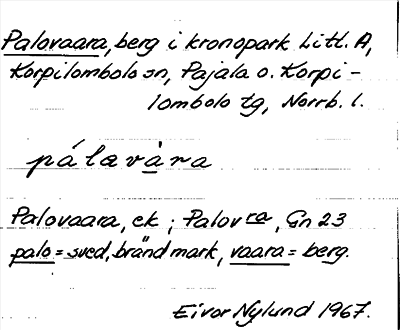 Palovaara, berg i kronopark Litt. A,
Korpilombolo sn, Pajala o. Korpi-
lombolo tg, Norrb. l.
pálavàra
Palovaara, ek ; Palov ra, Gn 23
palo = sved, bränd mark, vaara = berg.
Eivor Nylund 1967.